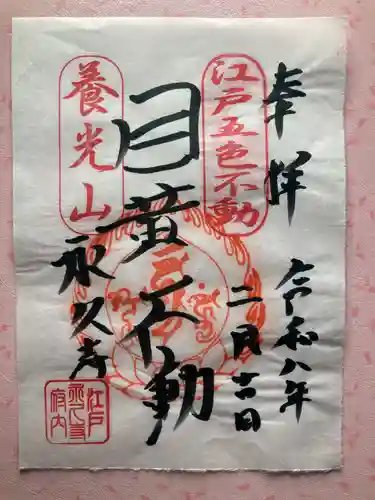 奉拝
令和八年
二月十一日
江戸五色不動
目黄不動
養光山
永久寺
江戸
永久寺
府内